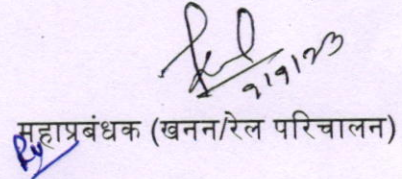 9/9/23
महाप्रबंधक (खनन/रेल परिचालन)